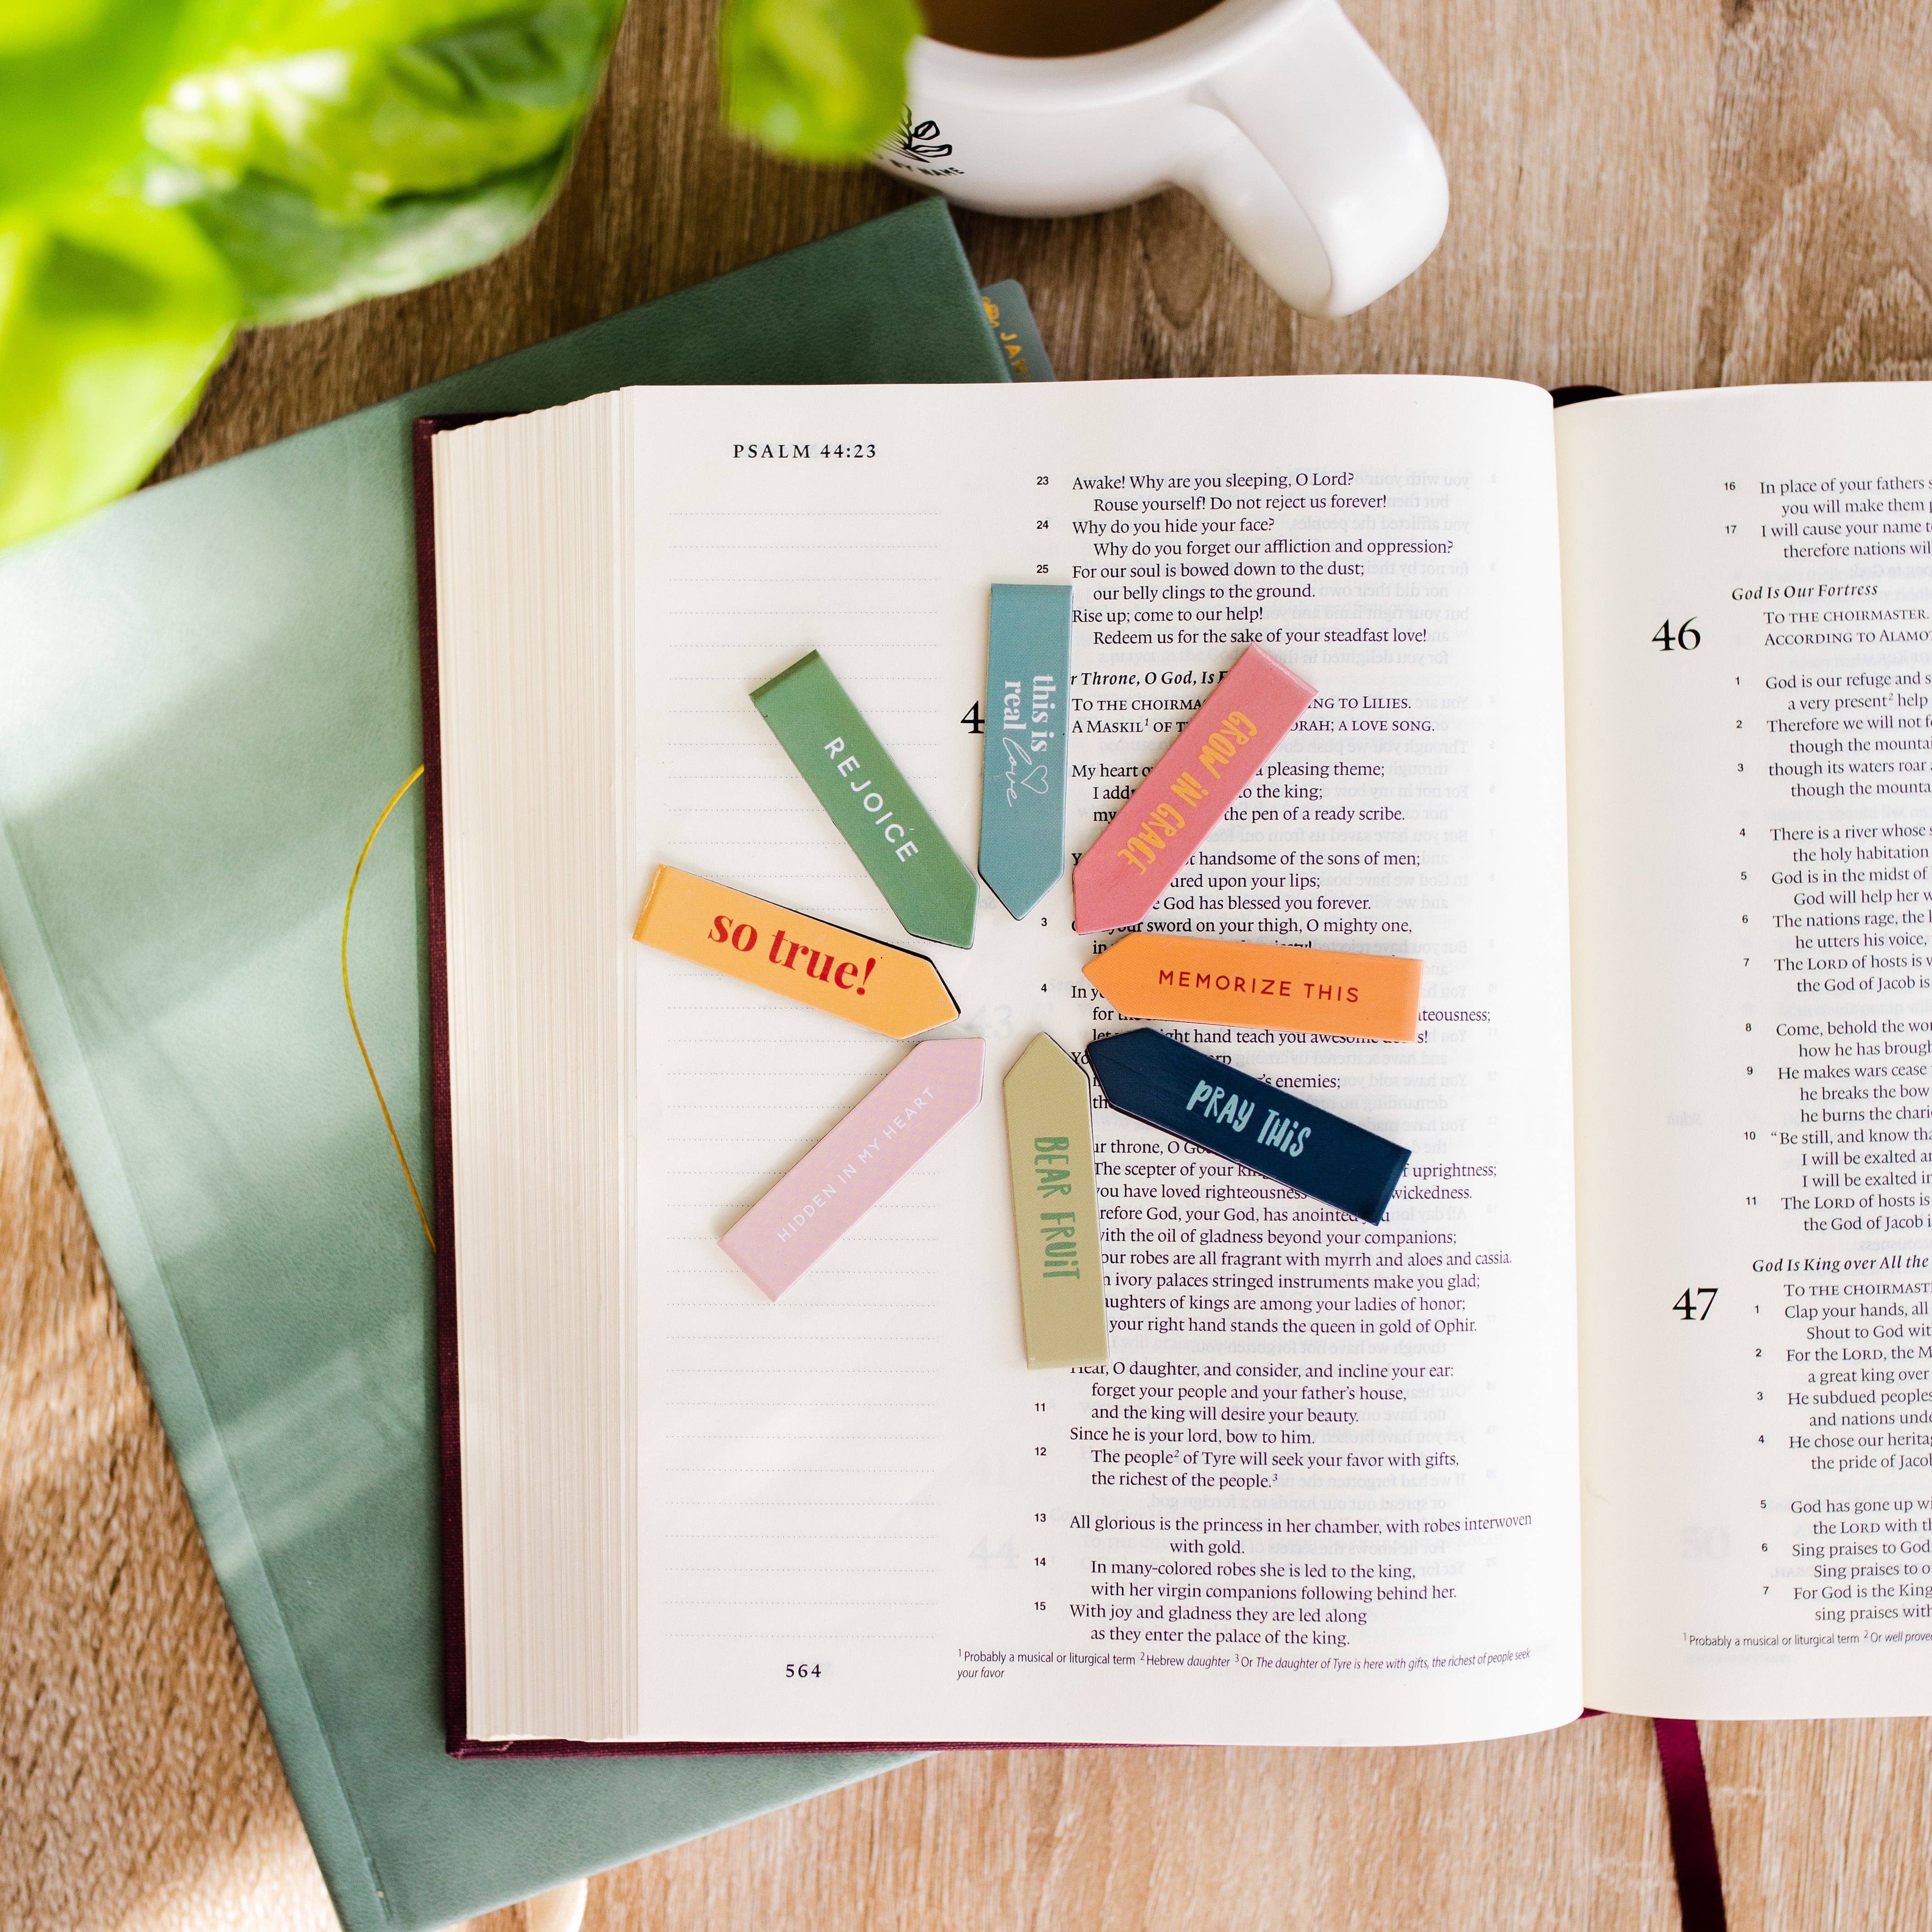 BY NAME
PSALM 44:23
23 Awake! Why are you sleeping, O Lord?
Rouse yourself! Do not reject us forever!
24 Why do you hide your face?
Why do you forget our affliction and oppression?
25 For our soul is bowed down to the dust;
our belly clings to the ground.
Rise up; come to our help!
Redeem us for the sake of your steadfast love!
Throne, O God, Is
TO THE CHOIRMA TO LILIES.
A MASKIL¹ OF A LOVE SONG.
My heart pleasing theme;
I to the king;
my the pen of a ready scribe.
handsome of the sons of men;
upon your lips;
God has blessed you forever.
3 your sword on your thigh, O mighty one,
in
4 In
for
hand teach you awesome
enemies;
throne, O
The scepter of your uprightness;
you have loved righteousness wickedness.
God, your God, has anointed you
with the oil of gladness beyond your companions;
your robes are all fragrant with myrrh and aloes and cassia.
ivory palaces stringed instruments make you glad;
daughters of kings are among your ladies of honor;
your right hand stands the queen in gold of Ophir.
Hear, O daughter, and consider, and incline your ear:
forget your people and your father's house,
11 and the king will desire your beauty.
Since he is your lord, bow to him.
12 The people² of Tyre will seek your favor with gifts,
the richest of the people.³
13 All glorious is the princess in her chamber, with robes interwoven
with gold.
14 In many-colored robes she is led to the king,
with her virgin companions following behind her.
15 With joy and gladness they are led along
as they enter the palace of the king.
¹ Probably a musical or liturgical term ² Hebrew daughter ³ Or The daughter of Tyre is here with gifts, the richest of people seek
your favor
564
this is
real love
REJOICE
GROW IN GRACE
so true!
MEMORIZE THIS
HIDDEN IN MY HEART
BEAR FRUIT
PRAY THIS
16 In place of your fathers
you will make them
17 I will cause your name
therefore nations
God Is Our Fortress
46 TO THE CHOIRMASTER.
ACCORDING TO ALAMO
1 God is our refuge and
a very present² help
2 Therefore we will not
though the
3 though its waters roar
though the
4 There is a river whose
the holy habitation
5 God is in the midst of
God will help her
6 The nations rage, the
he utters his voice,
7 The LORD of hosts is
the God of Jacob is
8 Come, behold the
how he has
9 He makes wars cease
he breaks the bow
he burns the
10 "Be still, and know
I will be exalted
I will be exalted
11 The LORD of hosts is
the God of Jacob
God Is King over All the
47 TO THE CHOIRMAST
1 Clap your hands, all
Shout to God
2 For the LORD, the
a great king over
3 He subdued peoples
and nations
4 He chose our
the pride of
5 God has gone up
the LORD with
6 Sing praises to God
Sing praises to
7 For God is the King
sing praises
¹ Probably a musical or liturgical term ² Or well